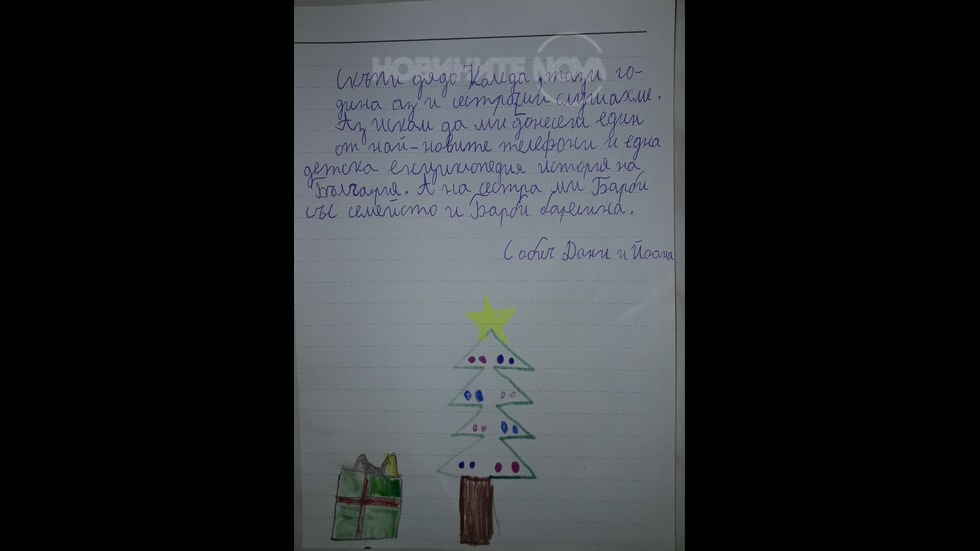 НОВИНИТЕ NOVA
Скъпи дядо Коледа, тази го-
дина аз и сестра ми слушахме.
Аз искам да ми донесеш един
от най-новите телефони и една
детска енциклопедия история на
България. А на сестра ми Барби
със семейсто и Барби балерина.
С обич Дани и Йоана